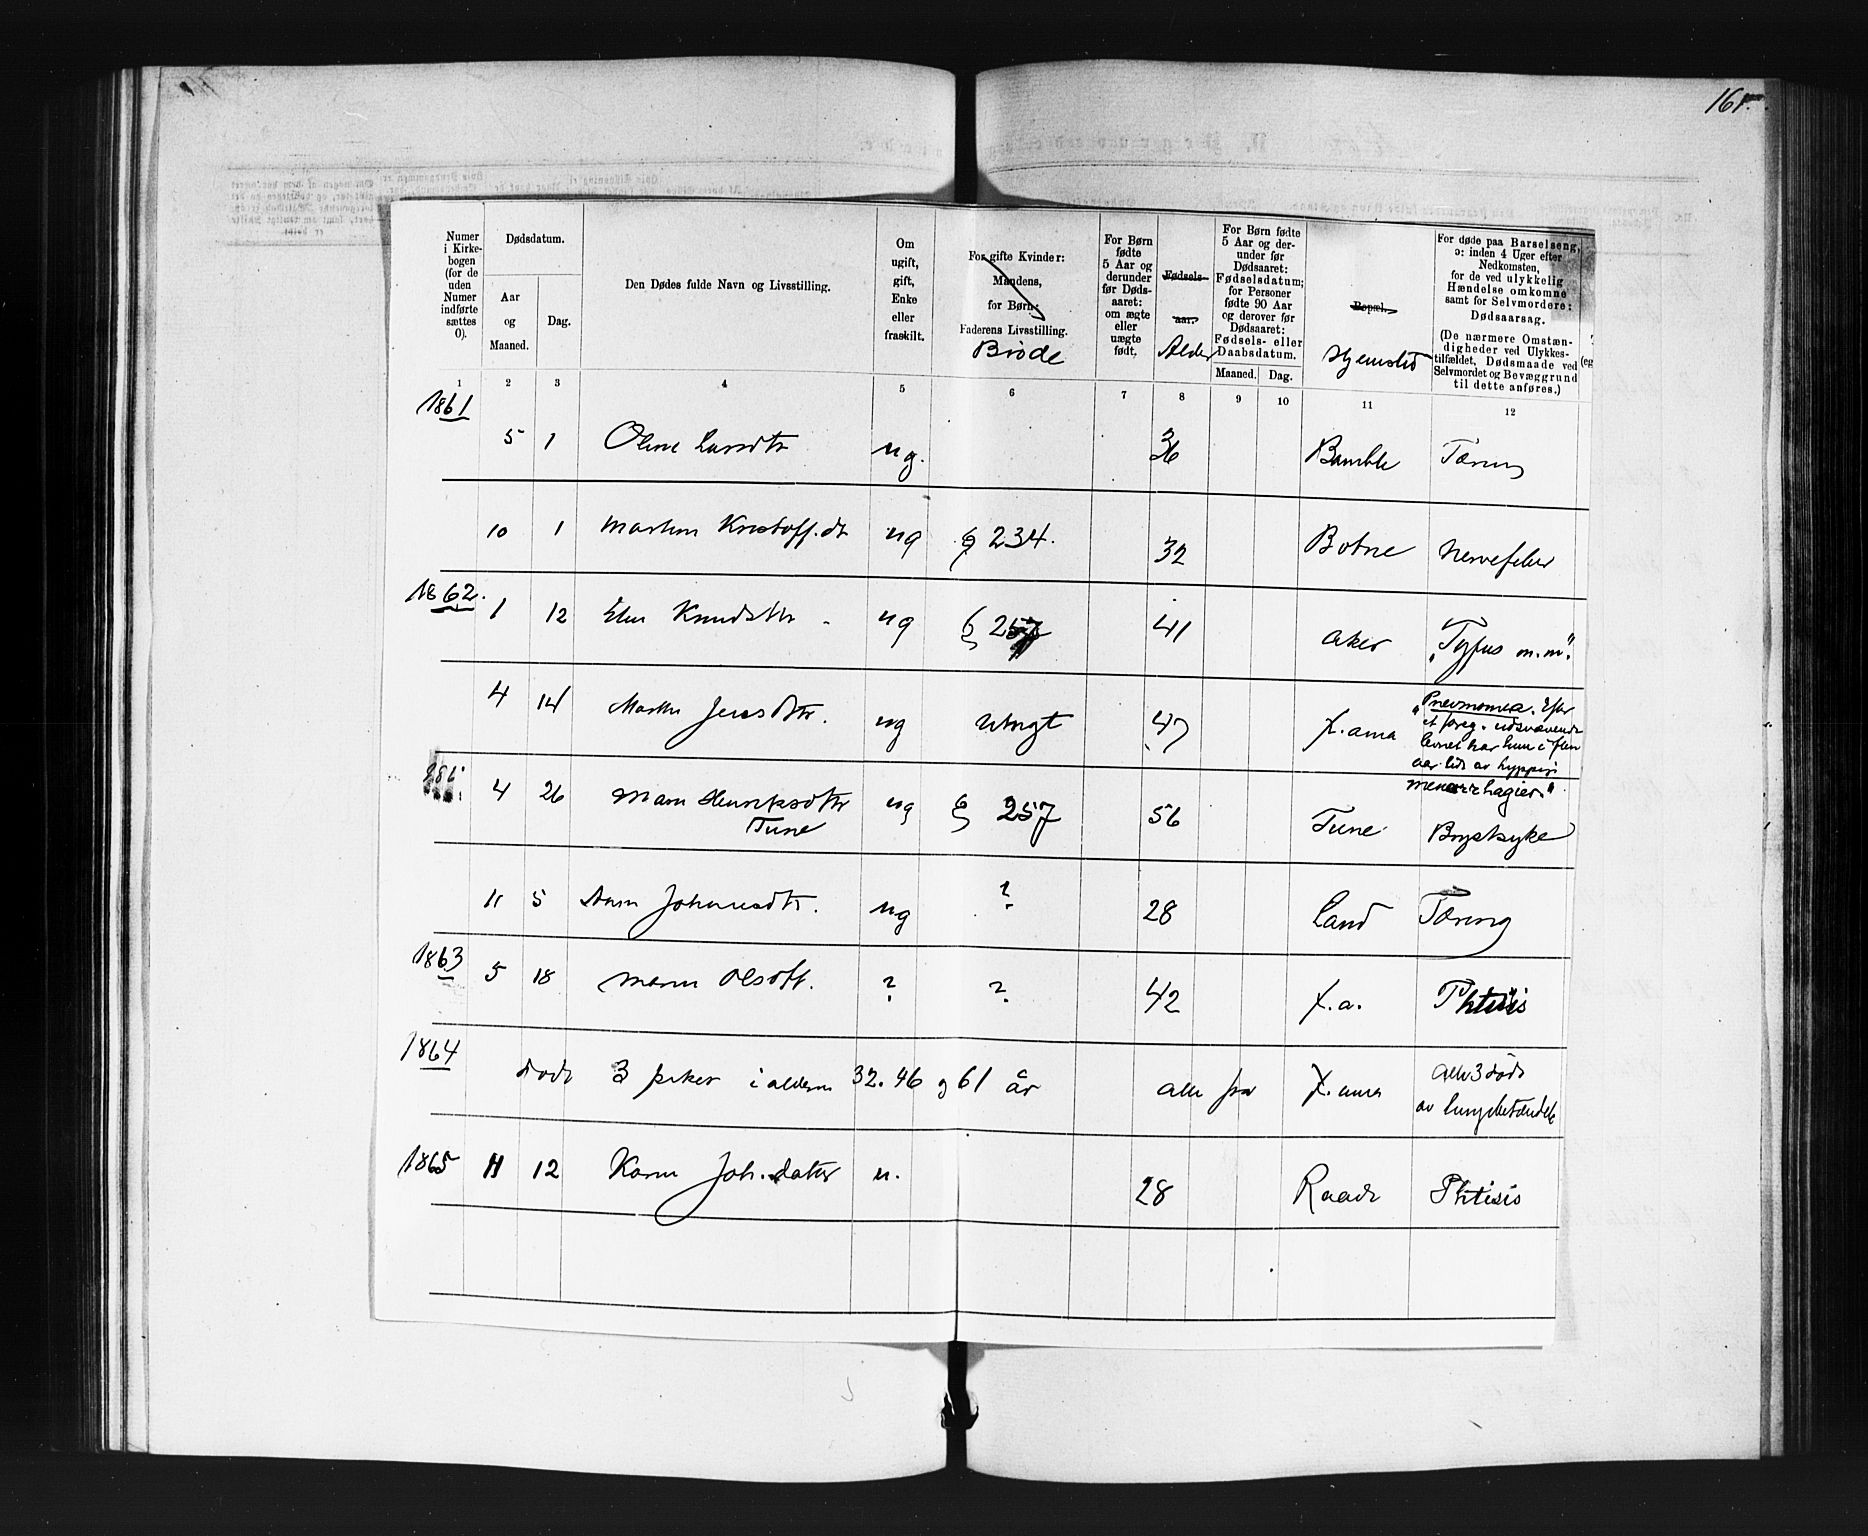 161.
Numer
i Kirke-
bogen
(for de
uden
Numer
indførte
sættes
0).
Dødsdatum.
Aar
og
Maaned.
Dag.
Den Dødes fulde Navn og Livsstilling.
Om
ugift,
gift,
Enke
eller
fraskilt.
For gifte Kvinder:
Mandens,
for Børn:
Faderens Livsstilling.
Bröde
For Børn
fødte
5 Aar og
derunder
før Døds-
aaret:
om ægte
eller
uægte
født.
Fødsels-
aar.
Alder
For Børn fødte
5 Aar og der-
under før
Dødsaaret:
Fødselsdatum;
for Personer
fødte 90 Aar
og derover før
Dødsaaret:
Fødsels- eller
Daabsdatum.
Maaned. Dag.
Bopæl.
Hjemsted
For døde paa Barselseng,
ɔ: inden 4 Uger efter
Nedkomsten,
for de ved ulykkelig
Hændelse omkomne
samt for Selvmordere:
Dødsaarsag.
(De nærmere Omstæn-
digheder ved Ulykkes-
tilfældet, Dødsmaade ved
Selvmordet og Bevæggrund
til dette anføres.)
(eg
1 2 3 4 5 6 7 8 9 10 11 12
1861
5 1 Oline Larsdtr ug. 36 Bamble Tæring
10 1 Marthe Kristoff.dtr ug § 234. 32 Botne Nervefeber
1862.
1 12 Elen Knudsdtr ug § 257 41 Aker "Tyfus m.m".
4 14 Marthe Jensdtr. ug Utugt 47 X.ania "Pnevmonia. Efter
et foreg. udsvævende
levnet har hun i flere
aar lidt av hyppige
menorrhagier."
4 26 Maren Henriksdtr ug § 257 56 Tune Brystsyke
Tune
11 5 Anne Johannesdtr. ug ? 28 Land Tæring
1863
5 18 Maren Olsdtr. ? ? 42 X.a. Phtisis
1864
döde 3 piker i alderen 32. 46 og 61 år alle fra X.ania Alle 3 döde
av lungebetændelse
1865 11 12 Karen Joh.datter u. 28 Raade Phtisis